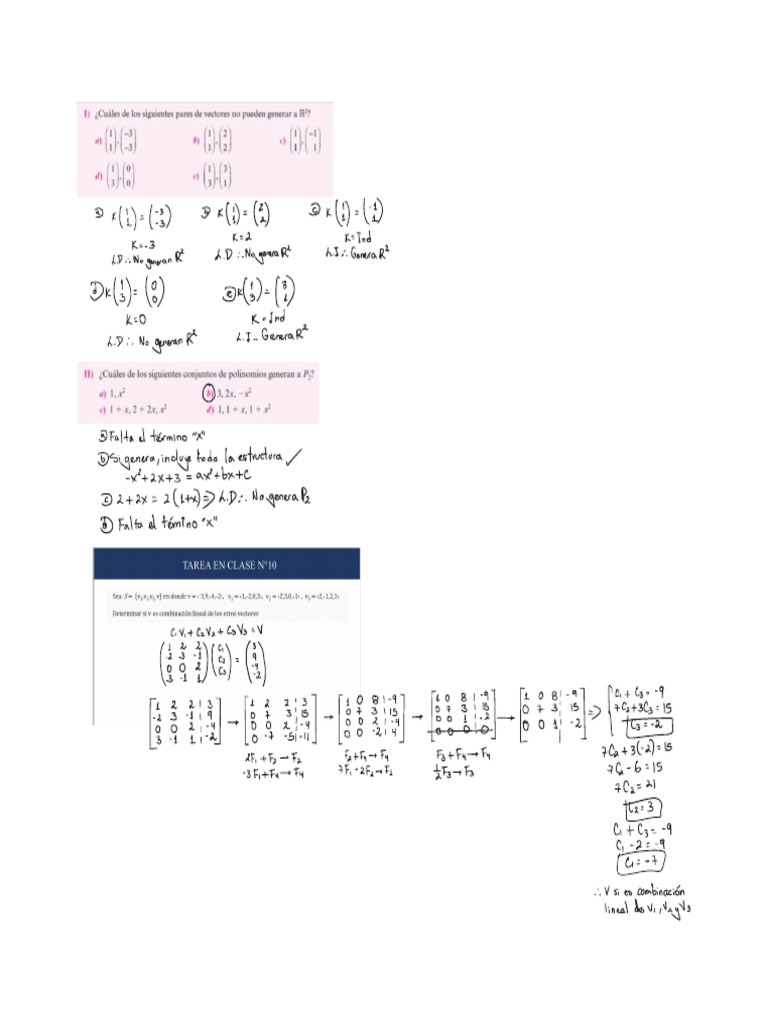 I) ¿Cuáles de los siguientes pares de vectores no pueden generar a ℝ²?
a) (1 1), (−3 −3) b) (1 1), (2 2) c) (1 1), (−1 1)
d) (1 3), (0 0) e) (1 3), (3 1)
a) K(1 1) = (-3 -3) b) K(1 1) = (2 2) c) K(1 1) = (-1 1)
K=-3 K=2 K=Ind
L.D ∴ No generan R² L.D ∴ No genera R² L.I ∴ Genera R²
d) K(1 3) = (0 0) e) K(1 3) = (3 1)
K=0 K=Ind
L.D ∴ No generan R² L.I ∴ Genera R²
II) ¿Cuáles de los siguientes conjuntos de polinomios generan a P₂?
a) 1, x² b) 3, 2x, −x²
c) 1 + x, 2 + 2x, x² d) 1, 1 + x, 1 + x²
a) Falta el término "x"
b) Si genera, incluye toda la estructura ✓
-x²+2x+3 = ax²+bx+c
c) 2+2x = 2(1+x) => L.D ∴ No genera P₂
d) Falta el témino "x"
TAREA EN CLASE N°10
Determinar si v es combinación lineal de los otros vectores
C₁V₁ + C₂V₂ + C₃V₃ = V
(1 2 2
-2 3 -1
0 0 2
3 -1 1) (C₁ C₂ C₃) = (3 9 -4 -2)
[1 2 2 | 3
-2 3 -1 | 9
0 0 2 | -4
3 -1 1 | -2]
→ [1 2 2 | 3
0 7 3 | 15
0 0 2 | -4
0 -7 -5 | -11]
2F₁+F₂→F₂
-3F₁+F₄→F₄
→ [1 0 8 | -9
0 7 3 | 15
0 0 2 | -4
0 0 -2 | 4]
F₂+F₄→F₄
7F₁-2F₂→F₁
→ [1 0 8 | -9
0 7 3 | 15
0 0 1 | -2
0 0 0 | 0]
F₃+F₄→F₄
½F₃→F₃
→ [1 0 8 | -9
0 7 3 | 15
0 0 1 | -2]
=> { C₁ + C₃ = -9
7C₂+3C₃ = 15
C₃ = -2
7C₂+3(-2) = 15
7C₂ - 6 = 15
7C₂ = 21
C₂ = 3
C₁ + C₃ = -9
C₁ - 2 = -9
C₁ = -7
∴ V si es combinación
lineal de V₁, V₂ y V₃